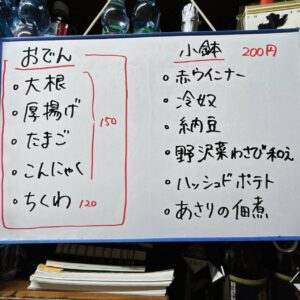 おでん
・大根
・厚揚げ
・たまご
・こんにゃく
150
・ちくわ 120
小鉢 200円
・赤ウインナー
・冷奴
・納豆
・野沢菜わさび和え
・ハッシュドポテト
・あさりの佃煮